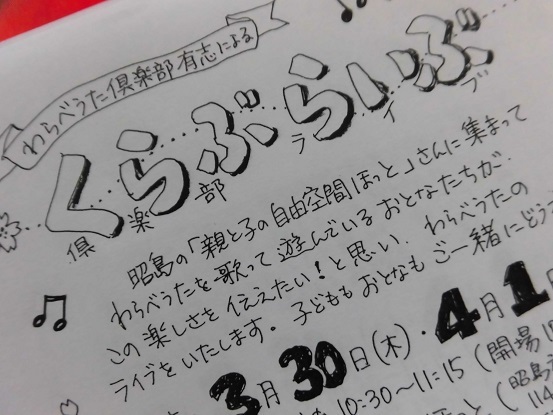 わらべうた倶楽部有志による
くらぶらいぶ
倶楽部ライブ
昭島の「親と子の自由空間ほっと」さんに集まって
わらべうたを歌って遊んでいるおとなたちが、
この楽しさを伝えたい!と思い、わらべうたの
ライブをいたします。子どももおとなもご一緒にどう
3月30日(木)・4月1
10:30~11:15(開場
(昭島